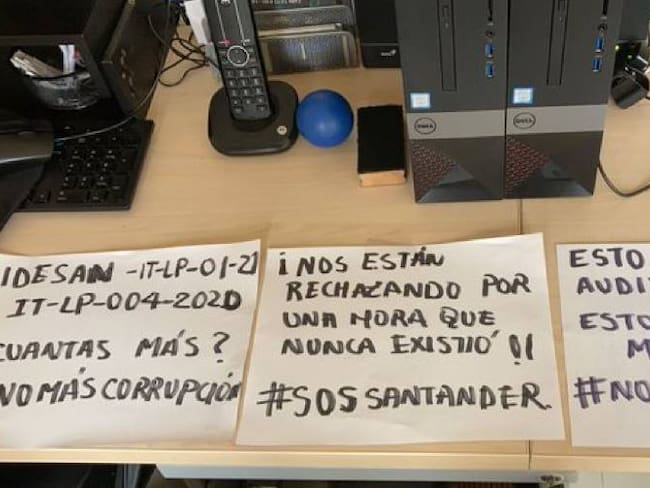 DELL
DELL
IDESAN -IT-LP-01-21
IT-LP-004-2020
CUANTAS MÁS?
NO MÁS CORRUPCIÓN
¡NOS ESTÁN
RECHAZANDO POR
UNA MORA QUE
NUNCA EXISTIÓ!!
#SOSSANTANDER.
ESTO
AUDI
ESTO
M
#NO